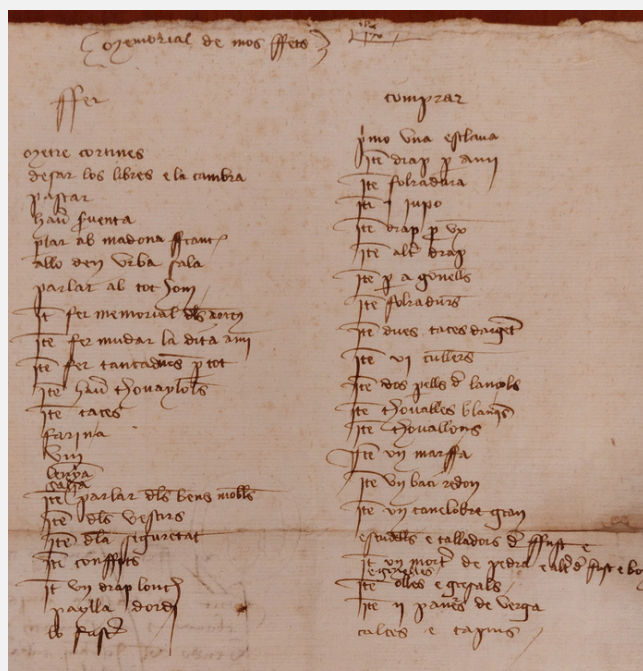 Memorial de mos ffets
ffer
metre cortines
desar los libres e la cambra
pastar
parlar ab madona
allo den urba sala
parlar ab tot hom
It fer memorial dls
ite fer mudar la dita
ite fer tancadures p tot
ite hau thovayloles
ite taces
farina
vin
lenya
ite parlar dls bens mobls
ite dls vestirs
ite dla seguretat
ite conffits
it un drap lonch
paylla dordi
lo fust
comprar
pmo una esclava
ite drap p ami
ite folradura
ite i jupo
ite drap p ux
ite alt drap
ite p a gonells
ite folradurs
ite dues taces darget
ite vi cullers
ite dos pells d lançols
ite thovalles blanqs
ite thovallons
ite un marffa
ite un baci redon
ite un canelobre gran
escudells e talladors d ffust e
it un mort de pedra e alt d fust e
ite olles e gresals
ite ii paners de verga
calces e tapins